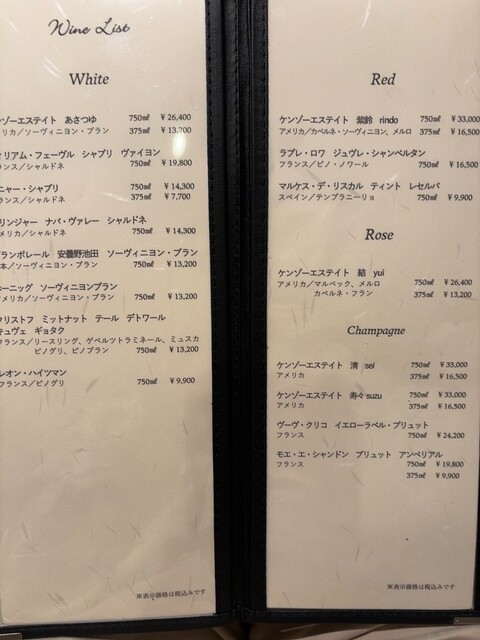 Wine List
White
ンゾーエステイト あさつゆ 750㎖ ¥26,400
メリカ／ソーヴィニヨン・ブラン 375㎖ ¥13,200
ィリアム・フェーヴル シャブリ ヴァイヨン
ランス／シャルドネ 750㎖ ¥19,800
ニャー・シャブリ 750㎖ ¥14,300
ランス／シャルドネ 375㎖ ¥7,700
リンジャー ナパ・ヴァレー シャルドネ
メリカ／シャルドネ 750㎖ ¥14,300
グランポレール 安曇野池田 ソーヴィニヨン・ブラン
本／ソーヴィニヨン・ブラン 750㎖ ¥13,200
ホーニッグ ソーヴィニヨンブラン
メリカ／ソーヴィニヨン・ブラン 750㎖ ¥13,200
クリストフ ミットナット テール デトワール
キュヴェ ギョタク
フランス／リースリング、ゲベルツトラミネール、ミュスカ
ピノグリ、ピノブラン 750㎖ ¥13,200
レオン・ハイツマン
フランス／ピノグリ 750㎖ ¥9,900
※表示価格は税込みです
Red
ケンゾーエステイト 紫鈴 rindo 750㎖ ¥33,000
アメリカ／カベルネ・ソーヴィニヨン、メルロ 375㎖ ¥16,500
ラブレ・ロワ ジュヴレ・シャンベルタン
フランス／ピノ・ノワール 750㎖ ¥16,500
マルケス・デ・リスカル ティント レセルバ
スペイン／テンプラニーリョ 750㎖ ¥9,900
Rose
ケンゾーエステイト 結 yui
アメリカ／マルベック、メルロ 750㎖ ¥26,400
カベルネ・フラン 375㎖ ¥13,200
Champagne
ケンゾーエステイト 清 sei 750㎖ ¥33,000
アメリカ 375㎖ ¥16,500
ケンゾーエステイト 寿々 suzu 750㎖ ¥33,000
アメリカ 375㎖ ¥16,500
ヴーヴ・クリコ イエローラベル・ブリュット
フランス 750㎖ ¥24,200
モエ・エ・シャンドン ブリュット アンペリアル
フランス 750㎖ ¥19,800
375㎖ ¥9,900
※表示価格は税込みです